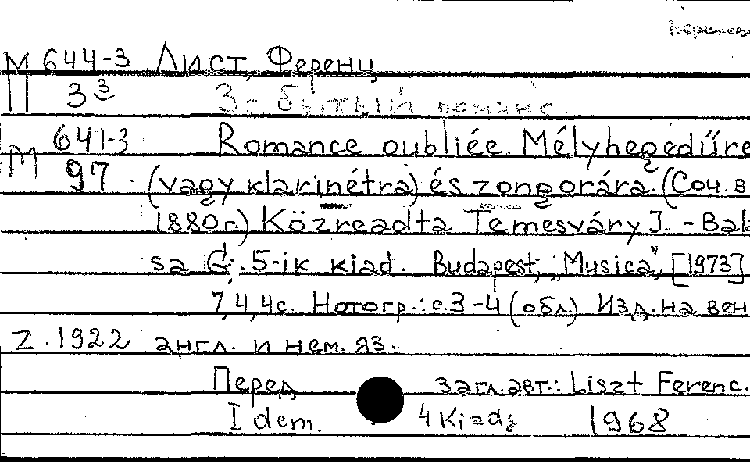 М 644-3 Лист, Ференц
П 3³ Забытый романс
М 641-3 Romance oubliée. Mélyhegedűre
97 (vagy klarinétra) és zongorára. (Соч. в
1880 г.) Közreadta Temesváry J. - Bal
sa G. 5-ik kiad. Budapest, "Musica", [1973]
7,4,4 с. Нотогр.: с. 3-4 (обл.) Изд. на вен
Z.1922 англ. и нем. яз.
Перед загл. авт.: Liszt Ferenc.
Idem. 4 Kiad. 1968